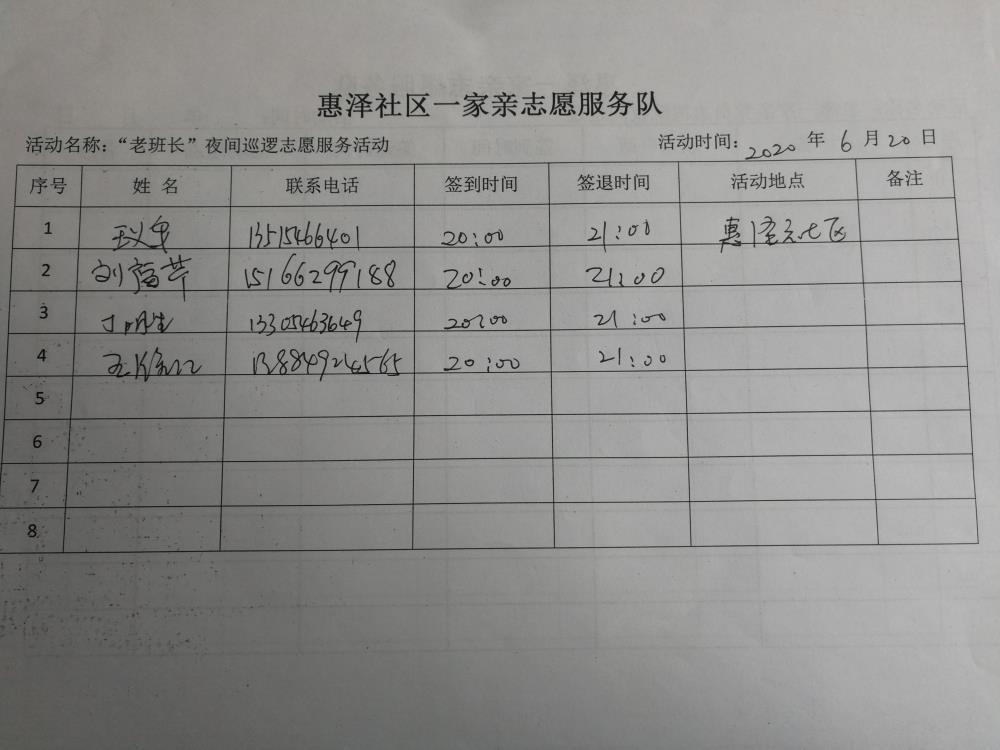 惠泽社区一家亲志愿服务队
活动名称：“老班长”夜间巡逻志愿服务活动 活动时间：2020 年 6 月 20 日
序号 姓 名 联系电话 签到时间 签退时间 活动地点 备注
1 13515466401 20:00 21:00 惠泽社区
2 刘莺芹 15166299188 20:00 21:00
3 13305463649 20:00 21:00
4 13884924565 20:00 21:00
5
6
7
8